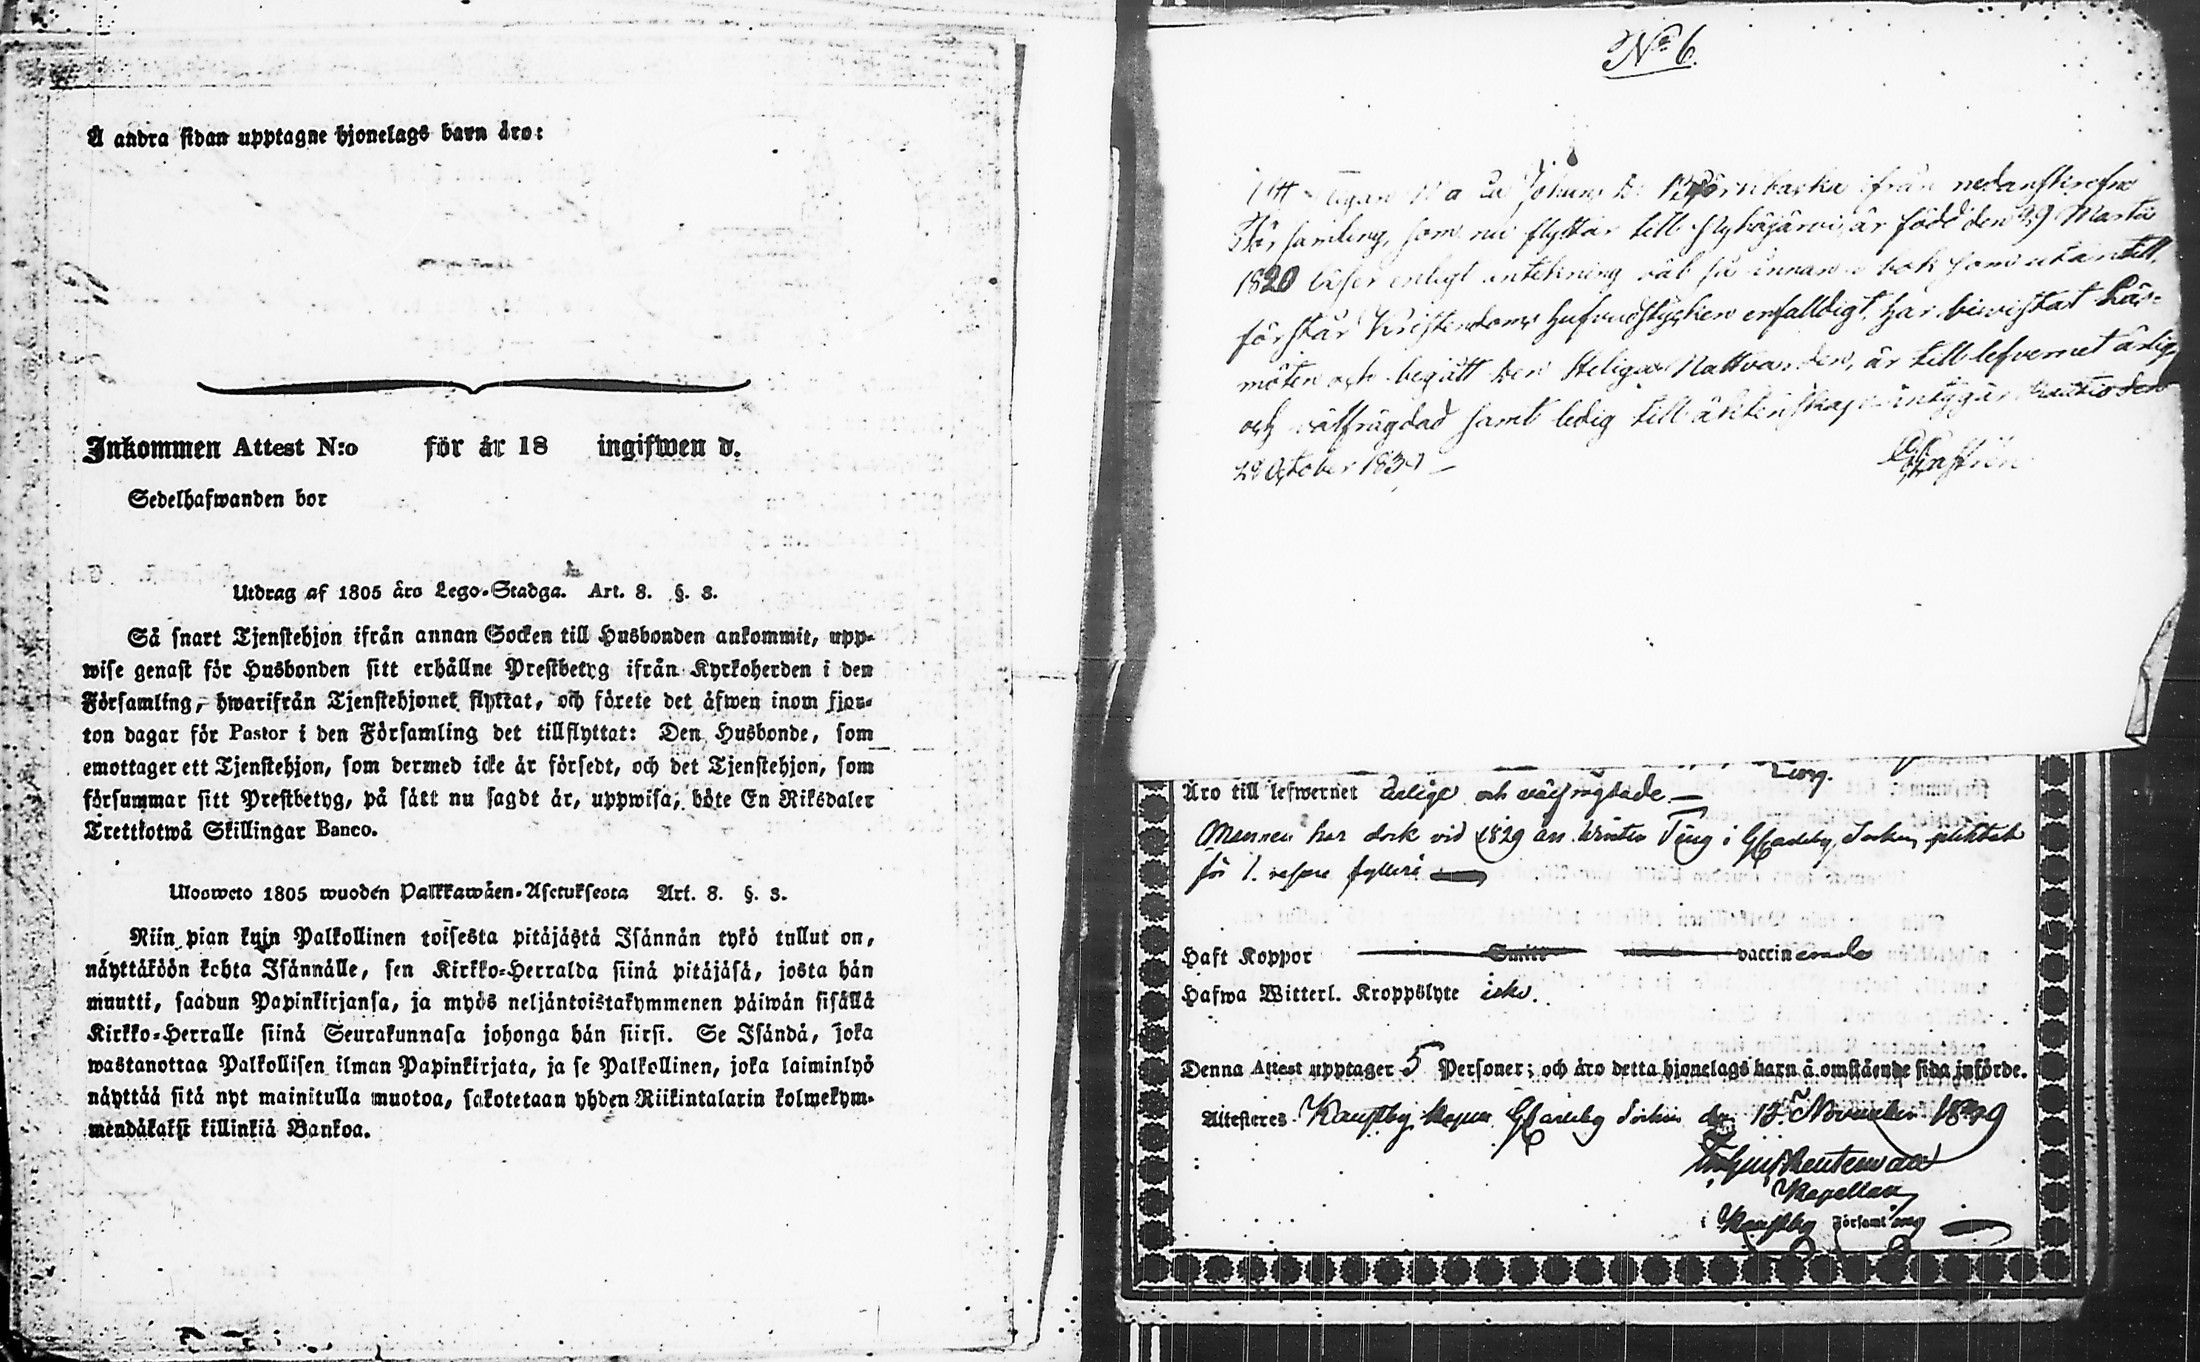 Å andra sidan upptagne hjonelags barn äro:
Inkommen Attest N:o för år 18 ingifwen d.
Sedelhafwanden bor
Utdrag af 1805 års Lego-Stadga. Art. 8. §. 3.
Så snart Tjenstehjon ifrån annan Socken till Husbonden ankommit, upp-
wise genast för Husbonden sitt erhållne Prestbetyg ifrån Kyrkoherden i den
Församling, hwarifrån Tjenstehjonet flyttat, och förete det äfwen inom fjor-
ton dagar för Pastor i den Församling det tillflyttat: Den Husbonde, som
emottager ett Tjenstehjon, som dermed icke är försedt, och det Tjenstehjon, som
försummar sitt Prestbetyg, på sätt nu sagdt är, uppwisa, böte En Riksdaler
Trettiotwå Skillingar Banco.
Ulosweto 1805 wuoden Palkkawäen-Asetuksesta Art. 8. §. 3.
Niin pian kuin Palkollinen toisesta pitäjästä Isännän tykö tullut on,
näyttäköön kohta Isännälle, sen Kirkko-Herralda siinä pitäjäsä, josta hän
muutti, saadun Papinkirjansa, ja myös neljäntoistakymmenen päiwän sisällä
Kirkko-Herralle siinä Seurakunnasa johonga hän siirsi. Se Isändä, joka
wastanottaa Palkollisen ilman Papinkirjata, ja se Palkollinen, joka laiminlyö
näyttää sitä nyt mainitulla muotoa, sakotetaan yhden Riikintalarin kolmekym-
mendäkaksi killinkiä Bankoa.
No 6.
ifrån nedanskrefne
Församling, som nu flyttar till är född den 29 Martii
1820 läser enligt antekning väl så innan i bok som utantill,
förstår Kristendoms hufvudstycken enfalldigt, har bewistat Läs-
möten och begått den Heliga Nattvarden, är till lefvernet ärlig
och välfrägdad samt ledig till äktenskap intygar den
October
Äro till lefwernet ärlige och välfrägdade
Mannen har dock vid 1829 års Winter Ting i Socken pliktat
för 1. resan fylleri
Haft Koppor Smitt vaccinerade
Hafwa Witterl. Kroppslyte icke.
Denna Attest upptager 5 Personer; och äro detta hjonelags barn å omstående sida införde.
Attesteras Kaustby Socken den November
Kapellan
i Kaustby Församling